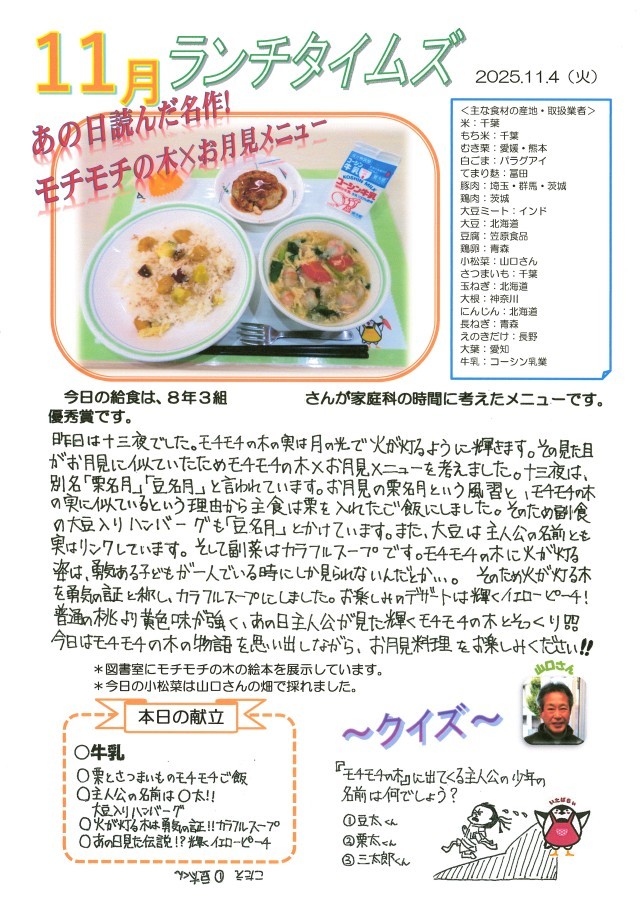 11月 ランチタイムズ
2025.11.4（火）
あの日読んだ名作!
モチモチの木×お月見メニュー
＜主な食材の産地・取扱業者＞
米：千葉
もち米：千葉
むき栗：愛媛・熊本
白ごま：パラグアイ
てまり麩：冨田
豚肉：埼玉・群馬・茨城
鶏肉：茨城
大豆ミート：インド
大豆：北海道
豆腐：笠原食品
鶏卵：青森
小松菜：山口さん
さつまいも：千葉
玉ねぎ：北海道
大根：神奈川
にんじん：北海道
長ねぎ：青森
えのきだけ：長野
大葉：愛知
牛乳：コーシン乳業
牛乳
コーシン牛乳
今日の給食は、８年３組 さんが家庭科の時間に考えたメニューです。
優秀賞です。
昨日は十三夜でした。モチモチの木の実は月の光で火が灯るように輝きます。その見た目
がお月見に似ていたためモチモチの木×お月見メニューを考えました。十三夜は、
別名「栗名月」「豆名月」と言われています。お月見の栗名月という風習と、モチモチの木
の実に似ているという理由から主食は栗を入れたご飯にしました。そのため副食
の大豆入りハンバーグも「豆名月」とかけています。また、大豆は主人公の名前とも
実はリンクしています。そして副菜はカラフルスープです。モチモチの木に火が灯る
姿は、勇気ある子どもが一人でいる時にしか見られないんだとか...。そのため火が灯る木
を勇気の証と称し、カラフルスープにしました。お楽しみのデザートは輝くイエローピーチ!
普通の桃より黄色味が強く、あの日主人公が見た輝くモチモチの木とそっくり!?
今日はモチモチの木の物語を思い出しながら、お月見料理をお楽しみください!!
＊図書室にモチモチの木の絵本を展示しています。
＊今日の小松菜は山口さんの畑で採れました。
山口さん
本日の献立
○牛乳
○栗とさつまいものモチモチご飯
○主人公の名前は〇太!!
大豆入りハンバーグ
○火が灯る木は勇気の証!!カラフルスープ
○あの日見た伝説!?輝くイエローピーチ
～クイズ～
『モチモチの木』に出てくる主人公の少年の
名前は何でしょう?
①豆太くん
②栗太くん
③三太郎くん
いたばちぃ
こたえ ①豆太くん